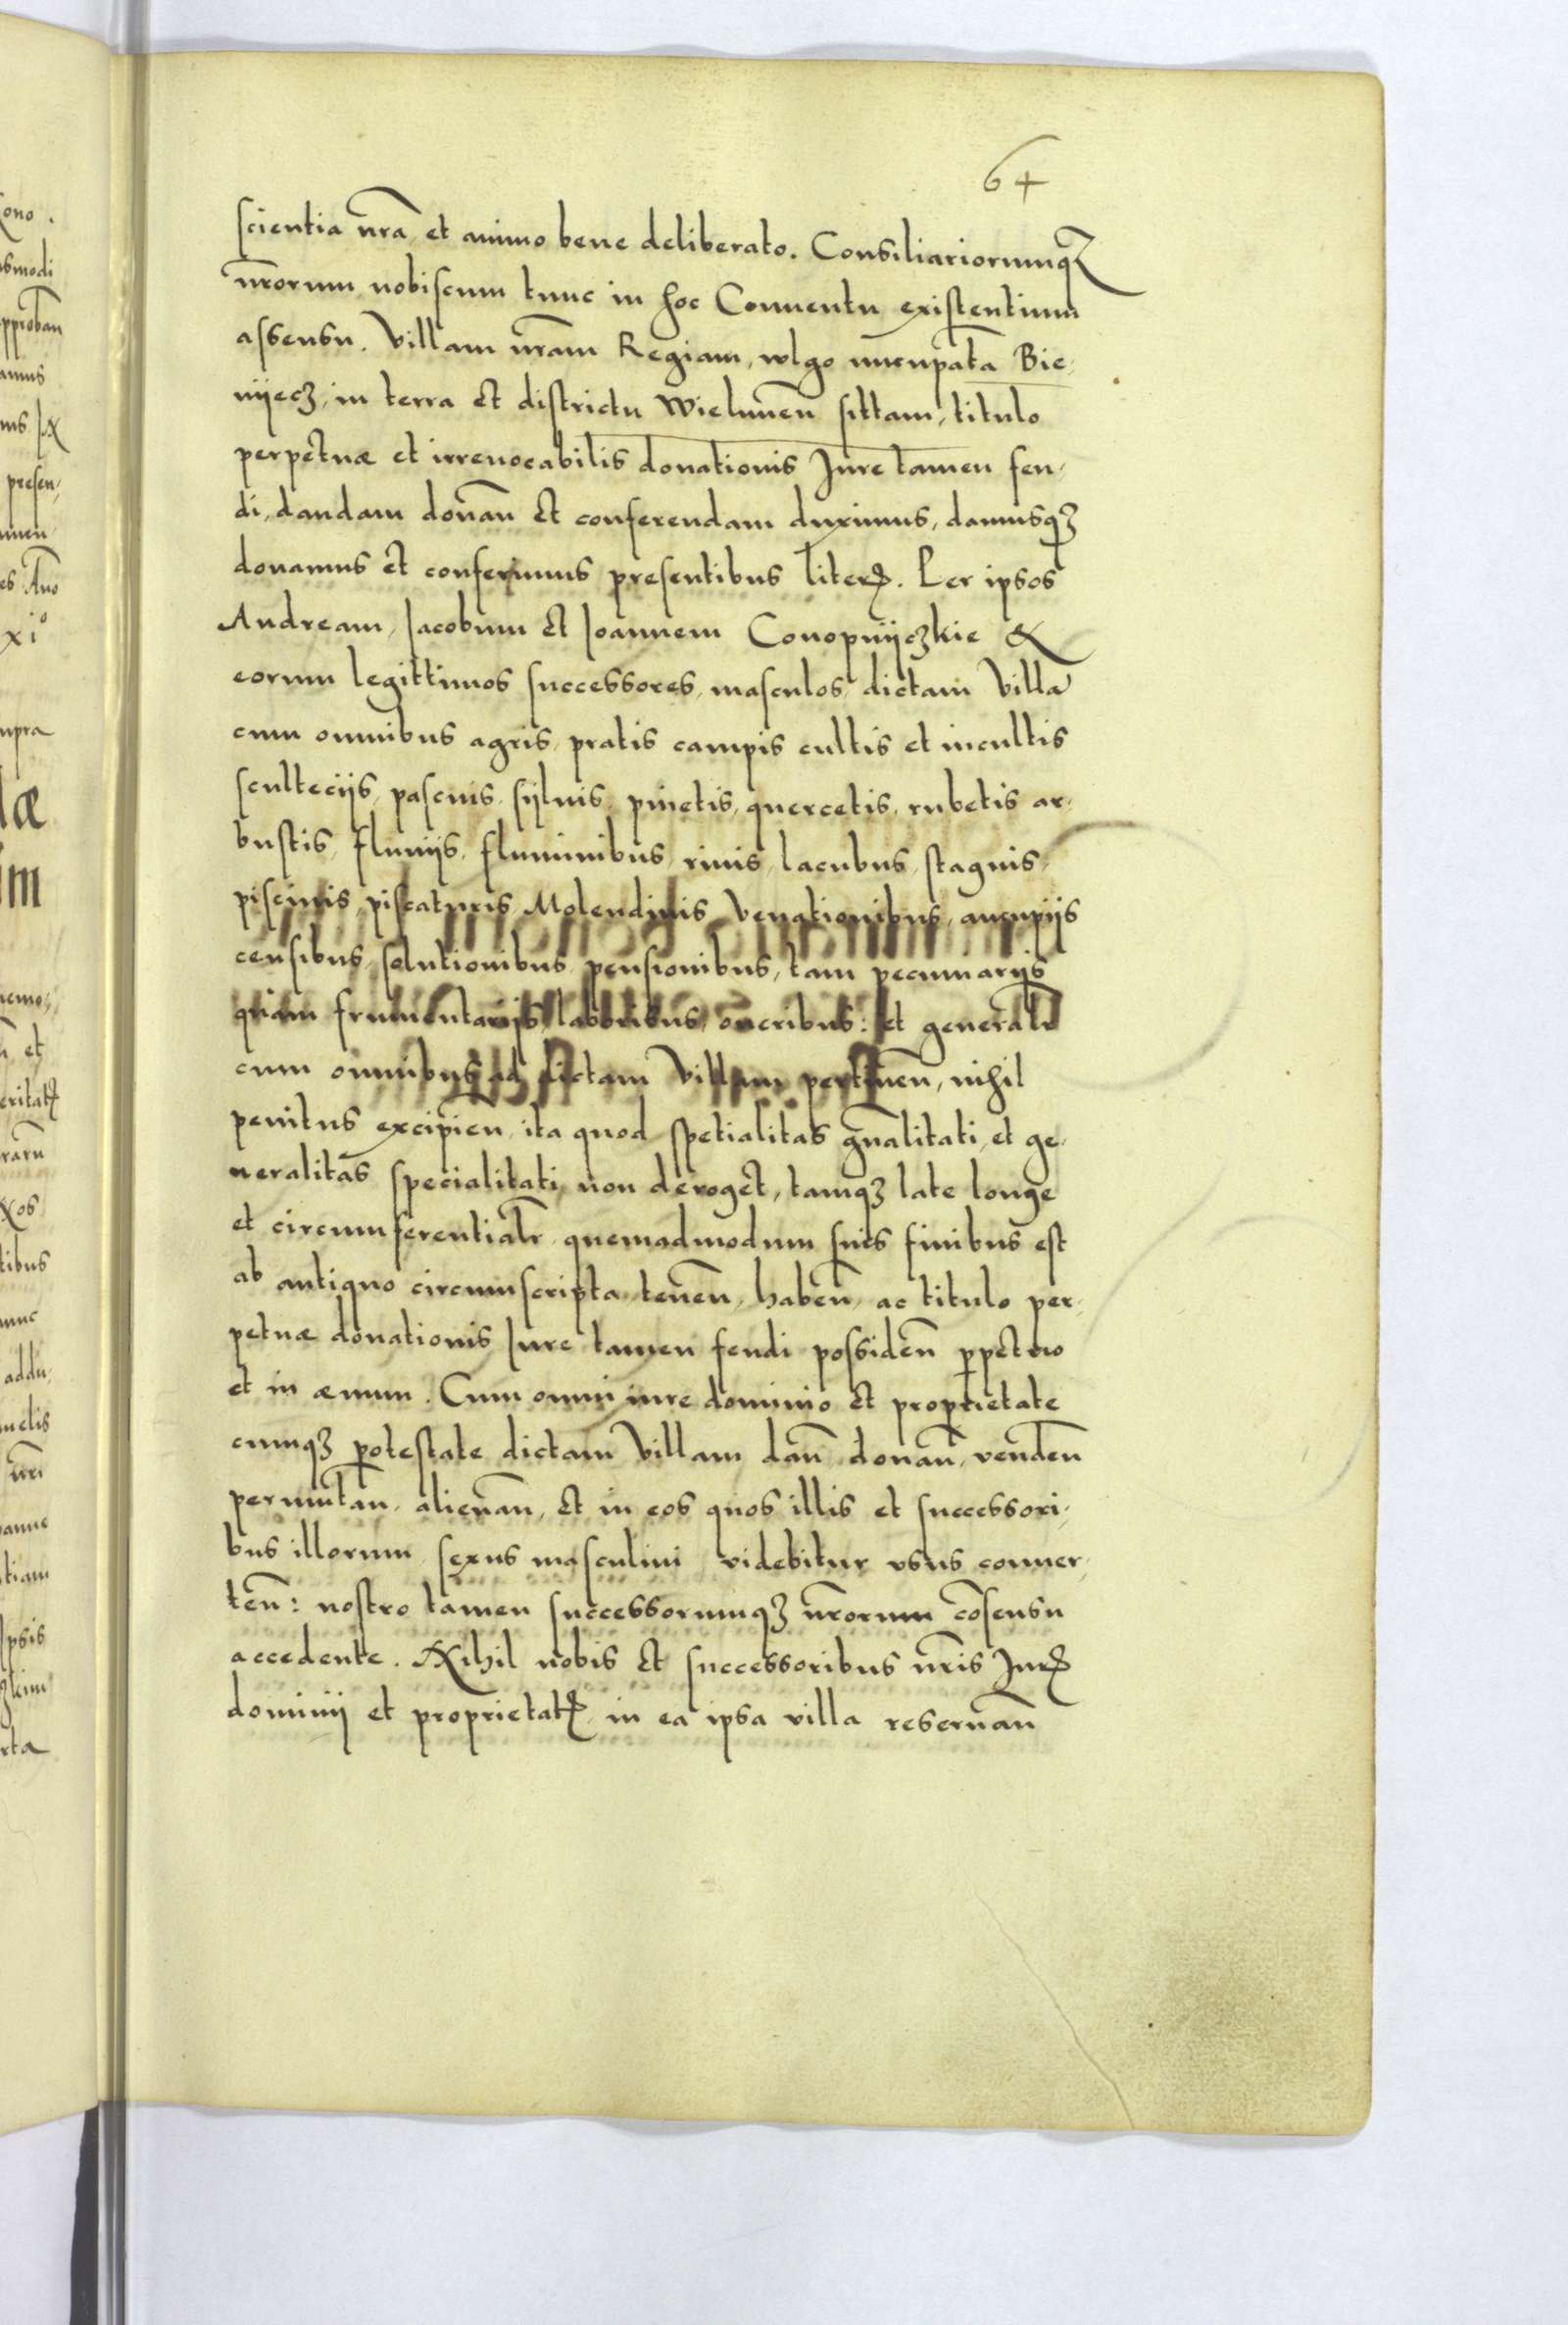 64
scientia nr̃a et animo bene deliberato. Consiliariorumqꝫ
nr̃orum nobiscum tunc in hoc Conuentu existentium
assensu. Villam nr̃am Regiam, wlgo nuncupatã Bie-
nijecz, in terra et districtu Wielunen̄ sittam, titulo
perpetuæ et irreuocabilis donationis Jure tamen feu-
di, dandam donan̄ et conferendam duximus, damusqꝫ
donamus et conferimus presentibus literꝭ. Per ipsos
Andream, Jacobum et Joannem Conopnijczkie &
eorum legittimos successores, masculos, dictam Villã
cum omnibus agris, pratis campis cultis et incultis
scultecijs, pascuis, syluis, pinetis, quercetis, rubetis ar-
bustis, fluuijs, fluminibus, riuis, lacubus, stagnis,
piscinis, piscaturis Molendinis, Venationibus, aucupijs
censibus, solutionibus, pensionibus, tam pecuniarijs
quam frumentarijs, laboribus, oneribus: et generalr̃
cum omnibus ad dictam Villam pertinen̄, nihil
penitus excipien̄, ita quod spetialitas gñalitati, et ge-
neralitas specialitati, non deroget, tamqꝫ late longe
et circumferentialr̃, quemadmodum suis finibus est
ab antiquo circumscripta, tenen̄, haben̄, ac titulo per-
petuæ donationis Jure tamen feudi possiden̄ ꝑpetuo
et in æuum. Cum omni iure dominio et proprietate
cumqꝫ potestate dictam Villam dan̄ donan̄, venden̄
permutan̄, alienan̄, et in eos quos illis et successori-
bus illorum sexus masculini videbitur vsus conuer-
ten̄: nostro tamen successorumqꝫ nr̃orum cõsensu
accedente. Nihil nobis et successoribus nr̃is Jurꝭ
dominij et proprietatꝭ in ea ipsa villa reseruan̄